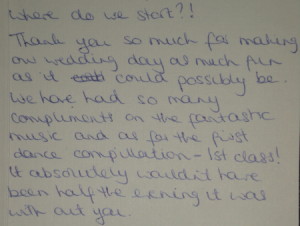 Where do we start?!
Thank you so much for making
our wedding day as much fun
as it could possibly be.
We have had so many
compliments on the fantastic
music and as for the first
dance compilation - 1st class!
It absolutely wouldn't have
been half the evening it was
with out you.